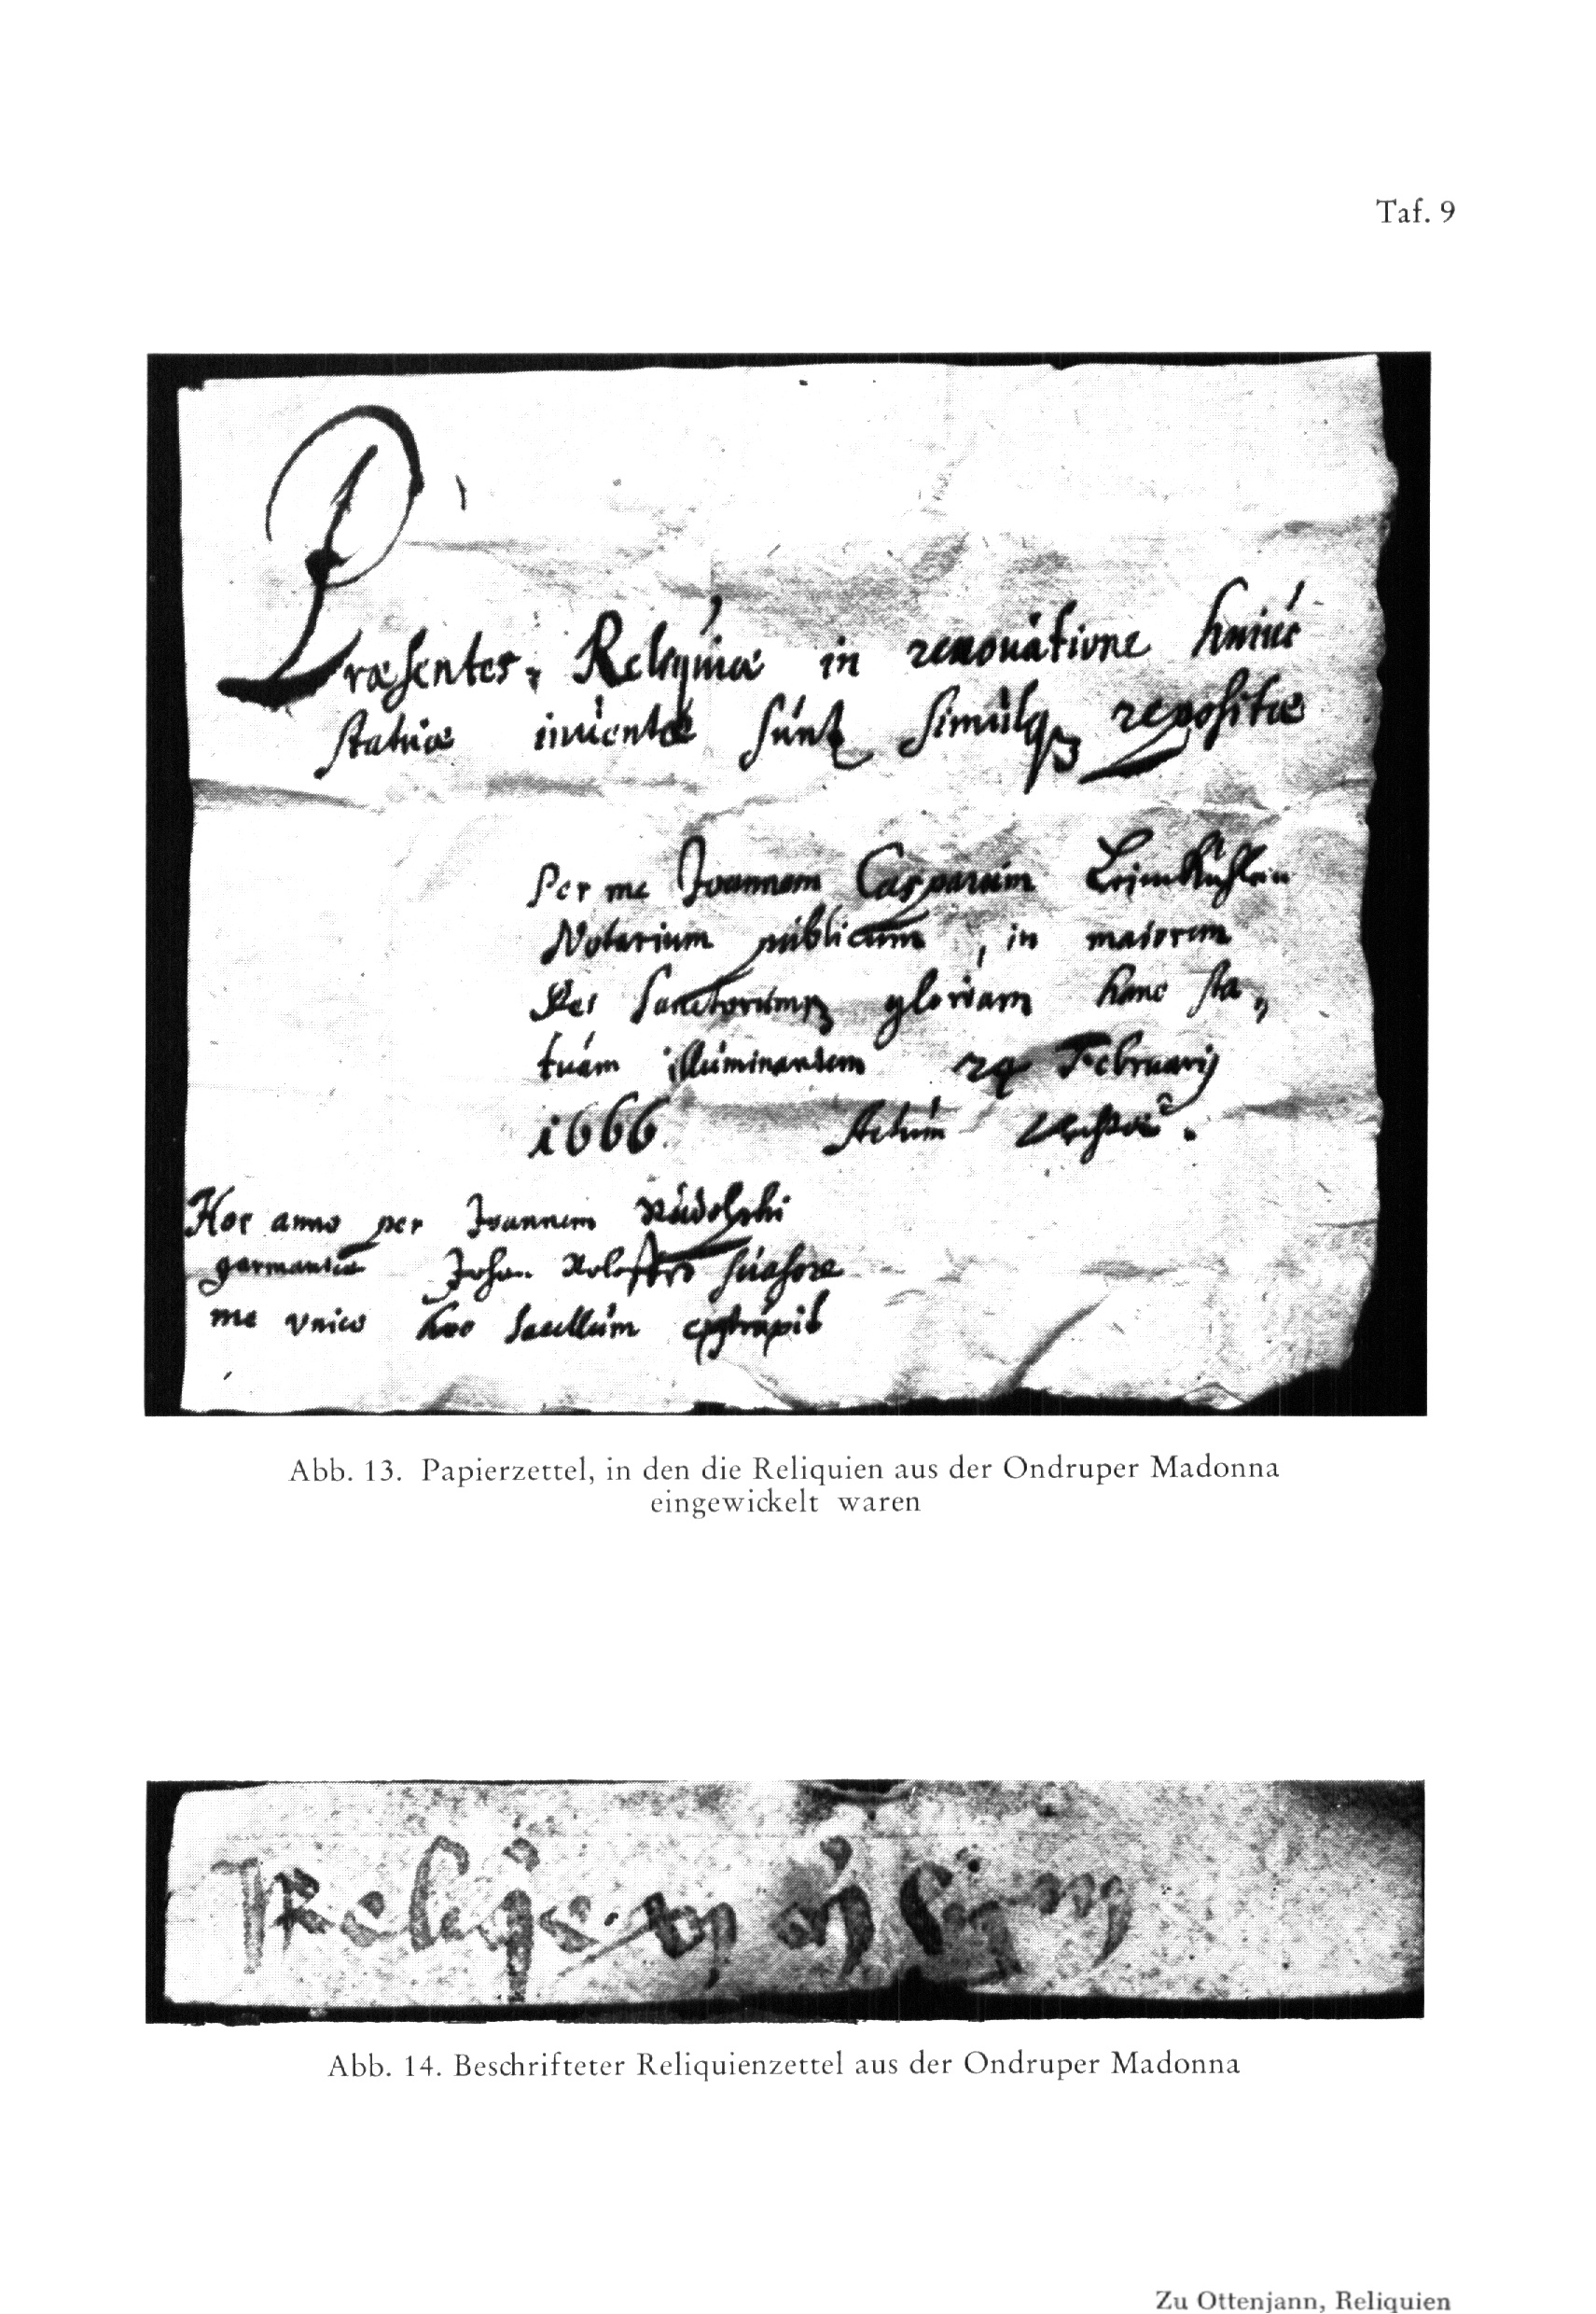 Taf. 9
Præsentes, Reliquiæ in renouatione huius
statuæ inuentæ sunt simulq₃ repositæ
Per me Joannem Casparum
Notarium publicum, in maiorem
Dei Sanctorumq₃ gloriam hanc sta„
tuam illuminantem 24 Februarij
1666. Actum
Hoc anno per Joannem Rudolphi
Johan suasore
me vnico hoc sacellum
Abb. 13. Papierzettel, in den die Reliquien aus der Ondruper Madonna
eingewickelt waren
Abb. 14. Beschrifteter Reliquienzettel aus der Ondruper Madonna
Zu Ottenjann, Reliquien